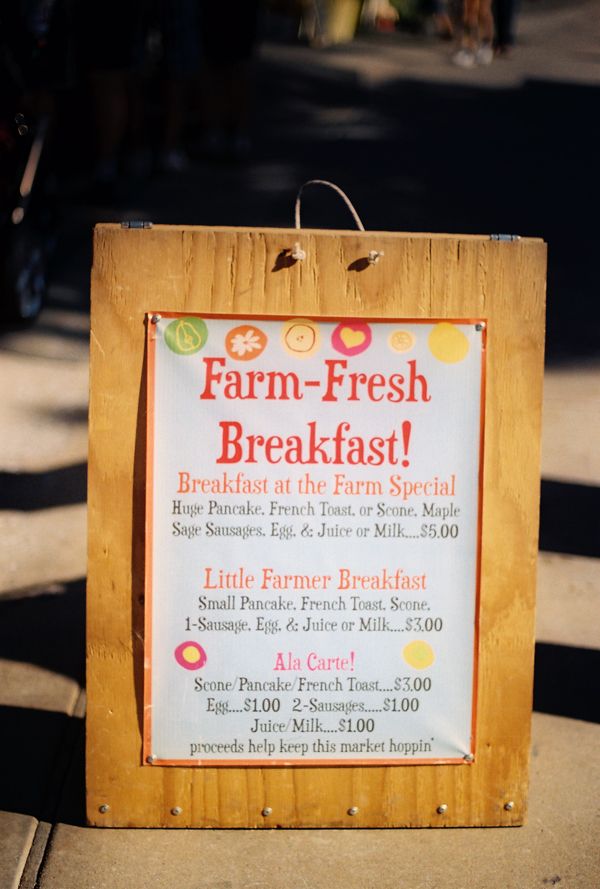 Farm-Fresh
Breakfast!
Breakfast at the Farm Special
Huge Pancake, French Toast, or Scone, Maple
Sage Sausages, Egg, & Juice or Milk....$5.00
Little Farmer Breakfast
Small Pancake, French Toast, Scone,
1-Sausage, Egg, & Juice or Milk....$3.00
Ala Carte!
Scone/Pancake/French Toast....$3.00
Egg....$1.00 2-Sausages.....$1.00
Juice/Milk....$1.00
proceeds help keep this market hoppin'